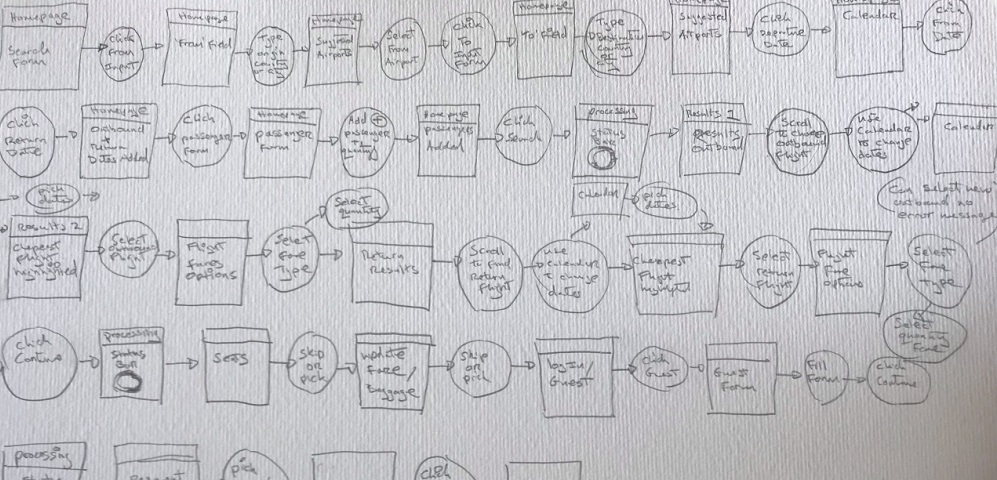 Homepage
Search
Form
Click
From
Input
Homepage
From Field
Type
origin
country
or city
Homepage
Suggested
Airports
Select
From
Airport
Click
To
Input
Form
Homepage
To Field
Type
Destination
Country
or
city
Suggested
Airports
Click
Departure
Date
Homepage
Calendar
Click
From
Date
Click
Return
Date
Homepage
Outbound
+
Return
Dates Added
Click
passenger
Form
Homepage
passenger
Form
Add +
passenger
quantity
Homepage
passengers
Added
Click
Search
processing
Status
Bar
Results 2
Results
Outbound
Scroll
to choose
outbound
Flight
use
Calendar
to change
dates
Calendar
pick
dates
Results 2
Cheapest
flight
highlighted
Select
Flight
Flight
fares
options
Select
Fare
Type
Select
quantity
Return
Results
Scroll
to find
Return
Flight
use
Calendar
to change
dates
Calendar
pick
dates
Cheapest
Flight
highlighted
Select
return
Flight
Flight
Fare
options
Select
Fare
type
Can select new
outbound no
error message
Select
quantity
Fare
Click
Continue
processing
Status
Bar
Seats
Skip
or
pick
update
fare/
Baggage
Skip
or
pick
log In/
Guest
Click
Guest
Guest
Form
Fill
Form
Click
Continue
processing
Status
pick
Click